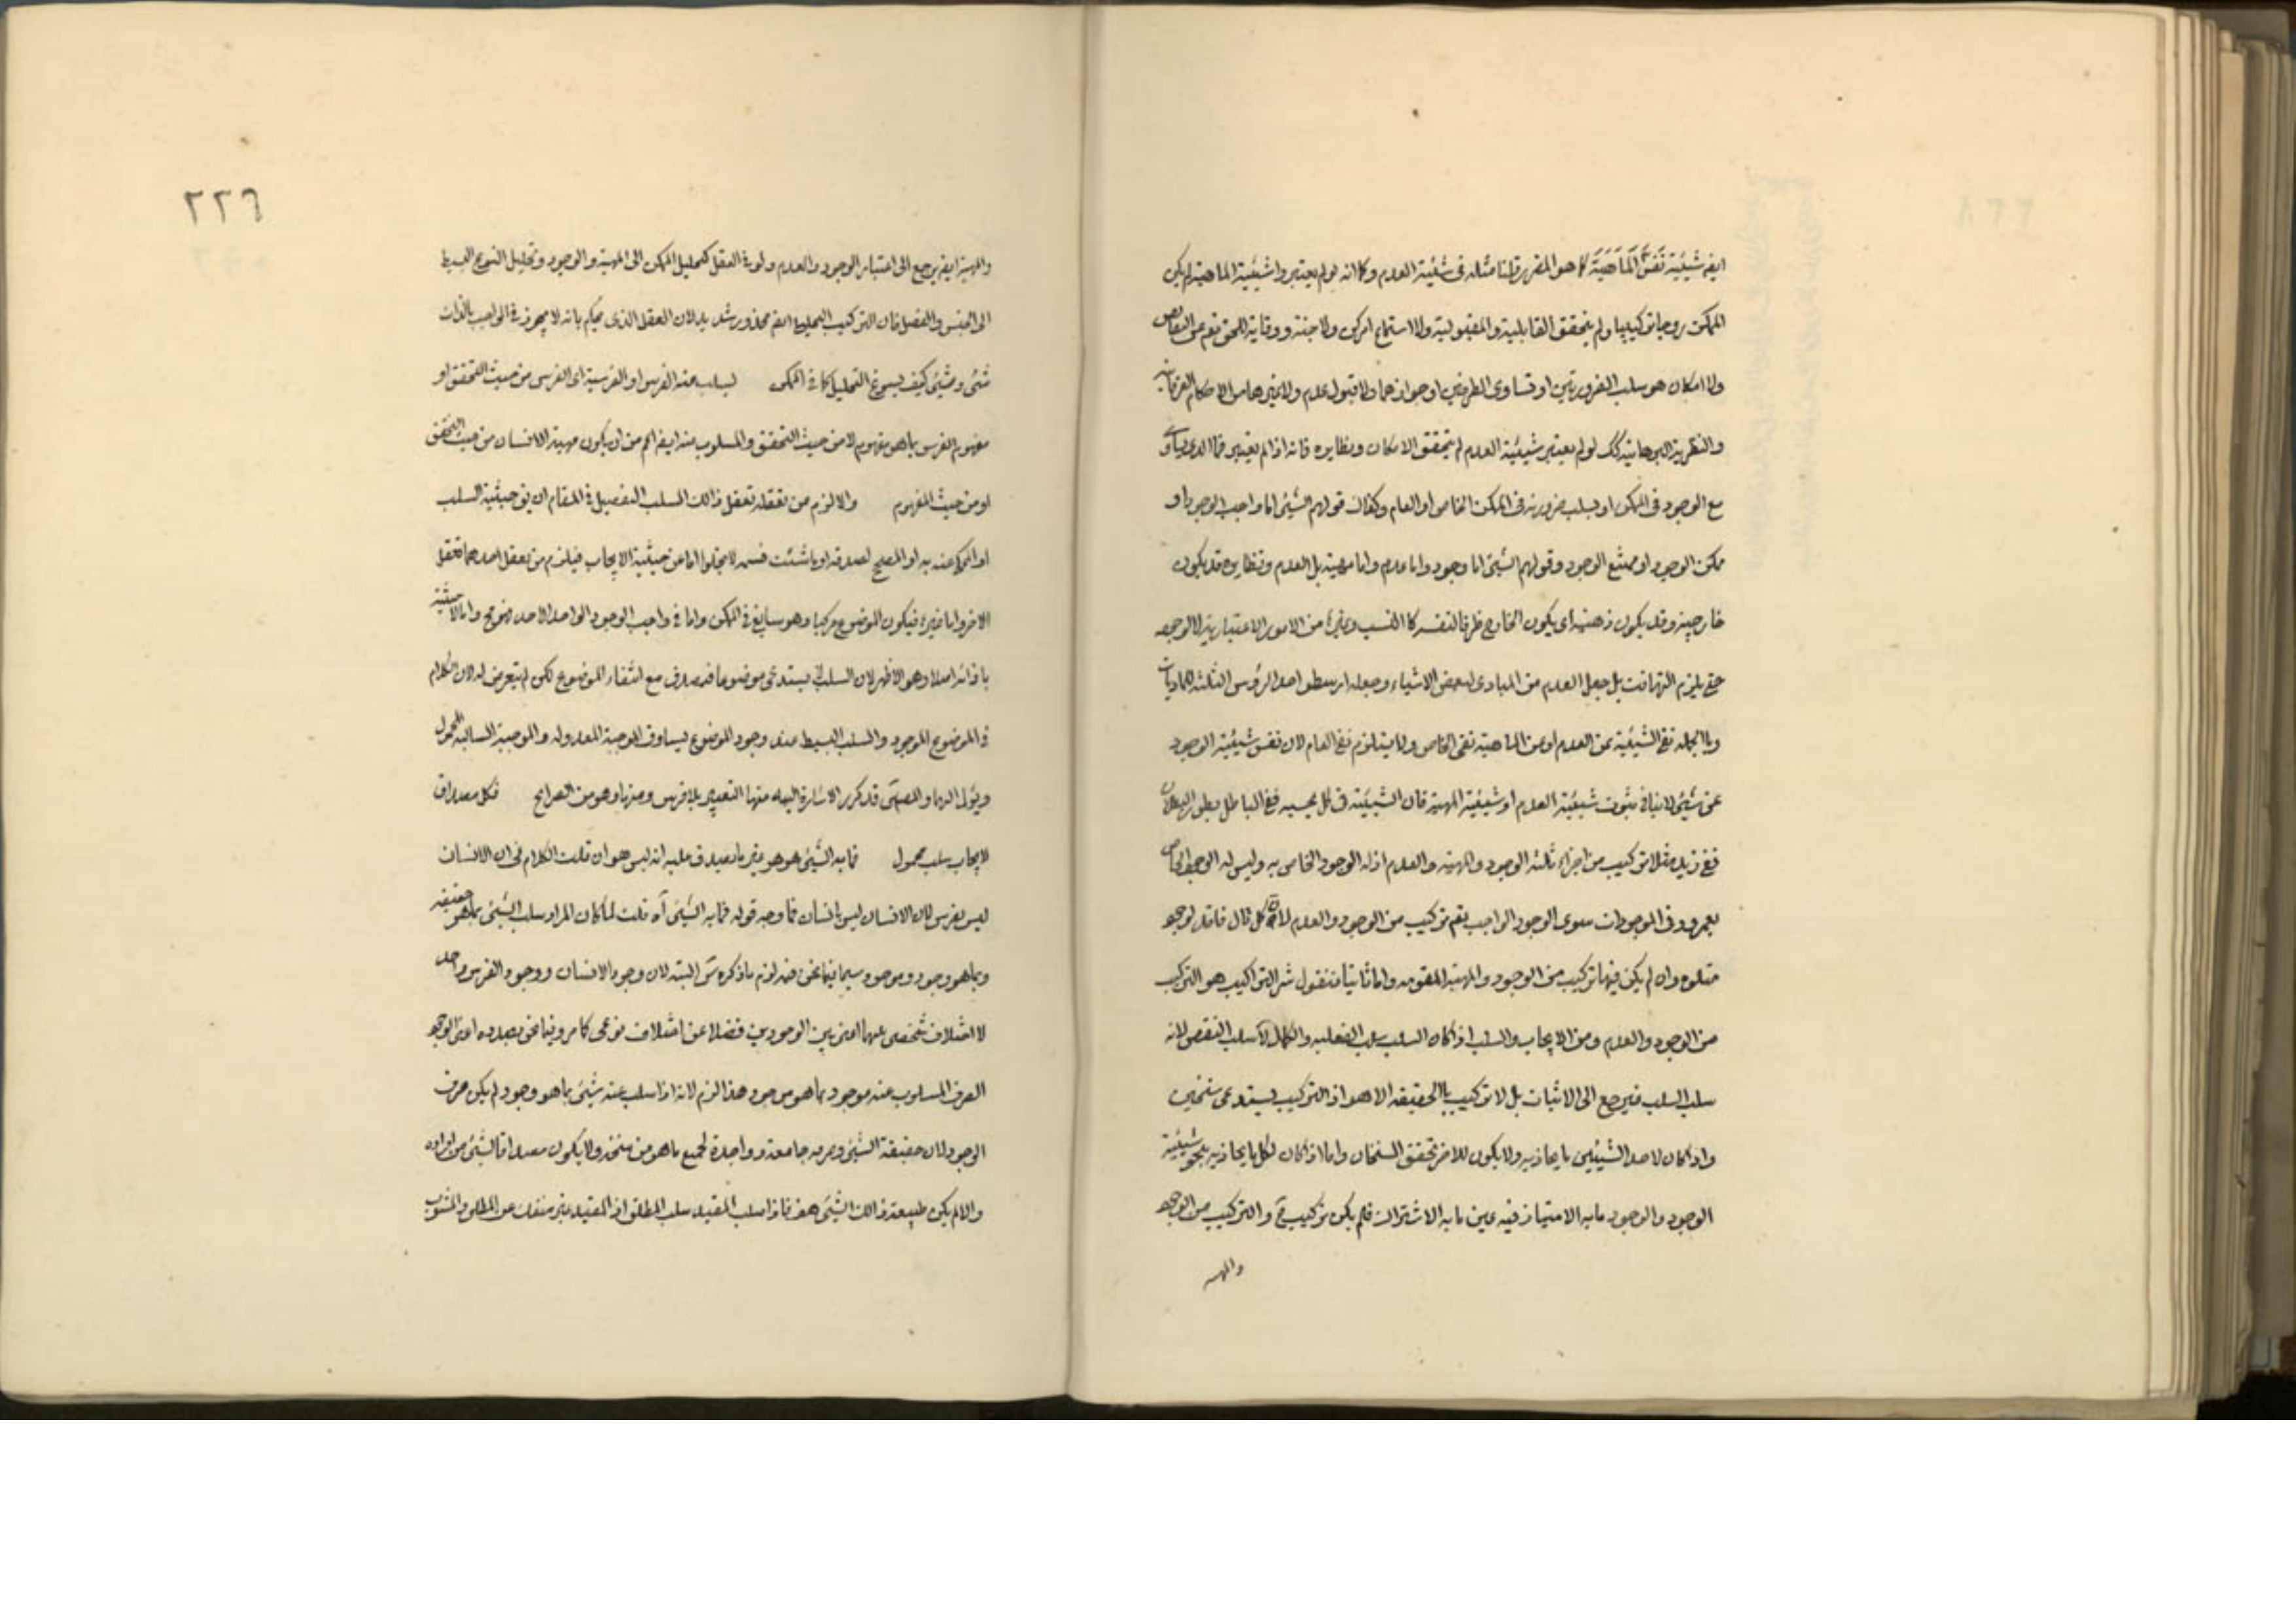 ايضه شيئية نفس الماهية كما هو المقرر قلنا مثله فى شيئية العدم وكما انه لو لم يعتبروا شيئية الماهية لم يكن
الممكن زوجا تركيبيا ولم يتحقق القابلية والمقبولية ولا استماع امر كن ولا جنة ووقاية للحق تقع عن النقايص
ولا امكان هو سلب الضرورتين او تساوى الطرفين او جوازهما ولا قبول عدم ولا غيرها من الاحكام العرفانية
والنظرية البرهانية كك لو لم يعتبر شيئية العدم لم يتحقق الامكان ونظايره فانه اذا لم يعتبر فما الذى يساوى
مع الوجود فى الممكن او يسلب ضرورته فى الممكن الخاص او العام وكذلك قولهم الشيئ اما واجب الوجود او
ممكن الوجود او ممتنع الوجود وقولهم الشيئ اما وجود واما عدم واما مهية بل العدم ونظايره قد يكون
خارجية وقد يكون ذهنية اى يكون الخارج ظرفا لنفسه كما النسب وغيره من الامور الاعتبارية لا لوجوده
حتى يلزم التهافت بل جعل العدم من المبادى لبعض الاشياء وجعله ارسطو احد الرؤس الثلثة للماديات
وبالجمله نفى الشيئية عن العدم او عن الماهية نفى الخاص ولا يستلزم نفى العام لان نفس شيئية الوجود
عن شيئ لا ينافى ثبوت شيئية العدم او شيئية المهية فان الشيئية فى كل بحسبه ففى الباطل بطور البطلان
ففى زيد مثلا تركيب من اجزاء ثلثه الوجود والمهية والعدم اذ له الوجود الخاص به وليس له الوجود الخاص
بعمرو وفى الموجودات سوى الوجود الواجب يقع تركيب من الوجود والعدم لان كل قال فاقد لوجود
متلوه وان لم يكن فيها تركيب من الوجود والمهية المقومه واما ثانيا فنقول شر التراكيب هو التركيب
من الوجود والعدم ومن الايجاب والسلب اذا كان السلب سلب الفعليه والكمال لا سلب النقص لانه
سلب السلب فيرجع الى الاثبات بل لا تركيب بالحقيقة الا هو اذ التركيب يستدعى سنخين
واذا كان لاحد الشيئين ما يحاذيه ولا يكون للاخر تحقق السنخان واما اذا كان لكل ما يحاذيه بنحو شيئية
الوجود والوجود ما به الامتياز فيه عين ما به الاشتراك فلم يكن تركيب ح والتركيب من الوجود
والمهيه
٢٢٦
والمهية ايضه يرجع الى اعتبار الوجود والعدم ولو فى العقل كتحليل الممكن الى المهية والوجود وتحليل النوع البسيط
الى الجنس والفصل فان التركيب التحليلى ايضه محذور شديد لان العقل الذى يحكم بانه لا يجوز فى الواجب بالذات
شئى وشيئ كيف يسوغ التحليل كما فى الممكن ليسلب عنه الفرس او الفرسية اى الفرس من حيث التحقق او
مفهوم الفرس بما هو مفهوم لا من حيث التحقق والمسلوب عنه ايضه اعم من ان يكون مهية الانسان من حيث التحقق
او من حيث المفهوم والا لزم من تعقله تعقل ذلك السلب التفصيل فى المقام ان يق حيثية السلب
او المحكى عنه به او المصحح لصدقه او ما شئت فسمه لا يخلو اما عن حيثية الايجاب فيلزم من تعقل احدهما تعقل
الاخر واما غيره فيكون الموضوع مركبا وهو سايغ فى الممكن واما فى واجب الوجود الواحد الاحد فهو مح واما لا حيثية
بازائه اصلا وهو الاظهر لان السلب لا يستدعى موضوعا فيصدق مع انتفاء الموضوع لكن لم يتعرض له لان الكلام
فى الموضوع الموجود والسلب البسيط عند وجود الموضوع يساوق الموجبة المعدوله والموجبة السالبه المحمول
ويؤل اليهما والمصنف قد كرر الاشارة اليه منها التعبير بلا فرس ومنها وهو من الصرايح فكل مصداق
لايجاب سلب محمول فما به الشيئ هو هو غير ما يصدق عليه انه ليس هو ان قلت الكلام فى ان الانسان
ليس بفرس لان الانسان ليس بانسان فما وجه قوله فما به الشيئ آه قلت لما كان المراد سلب الشيئ بما هو حقيقه
وبما هو وجود وموجود سيما فيما نحن فيه لزم ما ذكره س البته لان وجود الانسان ووجود الفرس واحد
لا اختلاف شخصى بينهما اعنى بين الوجودين فضلا عن اختلاف نوعى كما مر وفيما نحن بصدده اعنى الوجود
الصرف المسلوب عنه موجود بما هو موجود هذا الزم لانه اذا سلب عنه شيئ بما هو وجود لم يكن صرف
الوجود لان حقيقة الشيئ وصرفه جامعة وواجدة لجميع ما هو من سنخه ولا يكون مصداقا لشيئ من افراده
والا لم يكن طبيعة ذلك الشيئ هف فاذا سلب المقيد سلب المطلق اذ المقيد غير منفك عن المطلق والمشوب